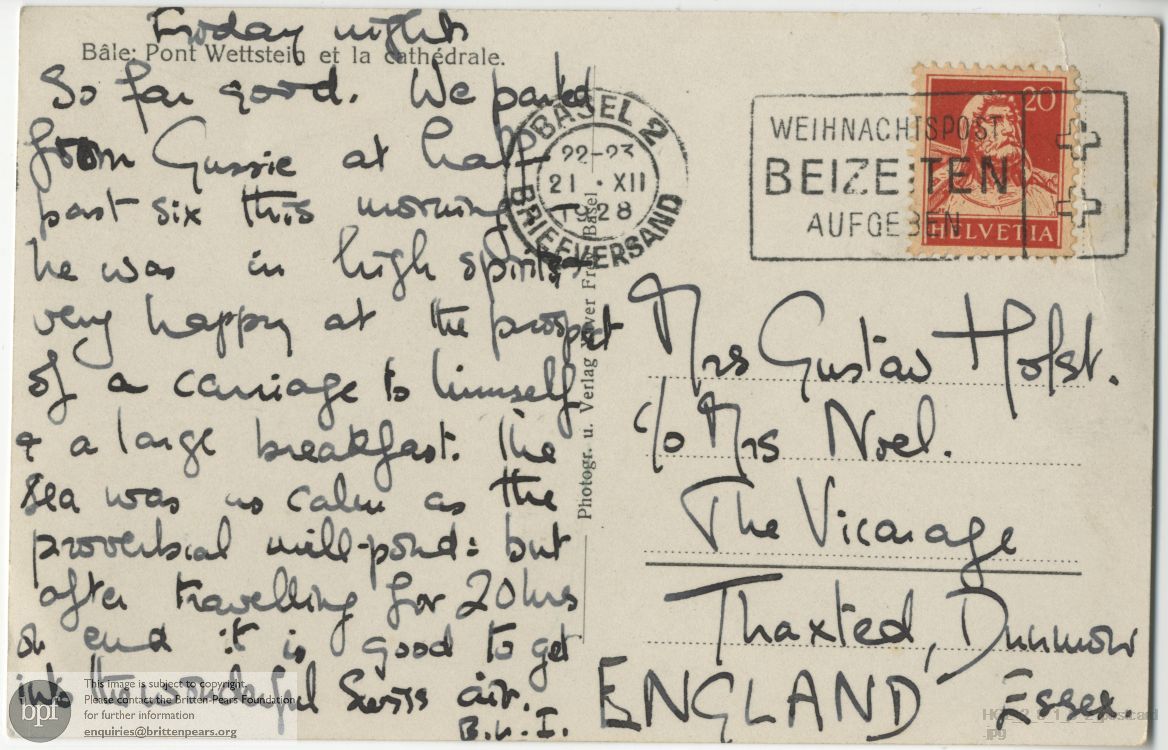 Friday night
Bâle: Pont Wettstein et la cathédrale.
So far good. We parted
from Gussie at half
past six this morning
he was in high spirits
very happy at the prospect
of a carriage to himself
& a large breakfast. The
sea was as calm as the
proverbial mill-pond: but
after travelling for 20 hrs
on end it is good to get
into the wonderful Swiss air.
BASEL 2
22-23
21 · XII
1928
BRIEFVERSAND
WEIHNACHTSPOST
BEIZEITEN
AUFGEBEN
20
HELVETIA
Photogr. u. Verlag Basel
Mrs Gustav Holst.
c/o Mrs Noel.
The Vicarage
Thaxted, Dunmow
ENGLAND Essex.
bpf
This image is subject to copyright.
Please contact the Britten-Pears Foundation
for further information
enquiries@brittenpears.org
.jpg